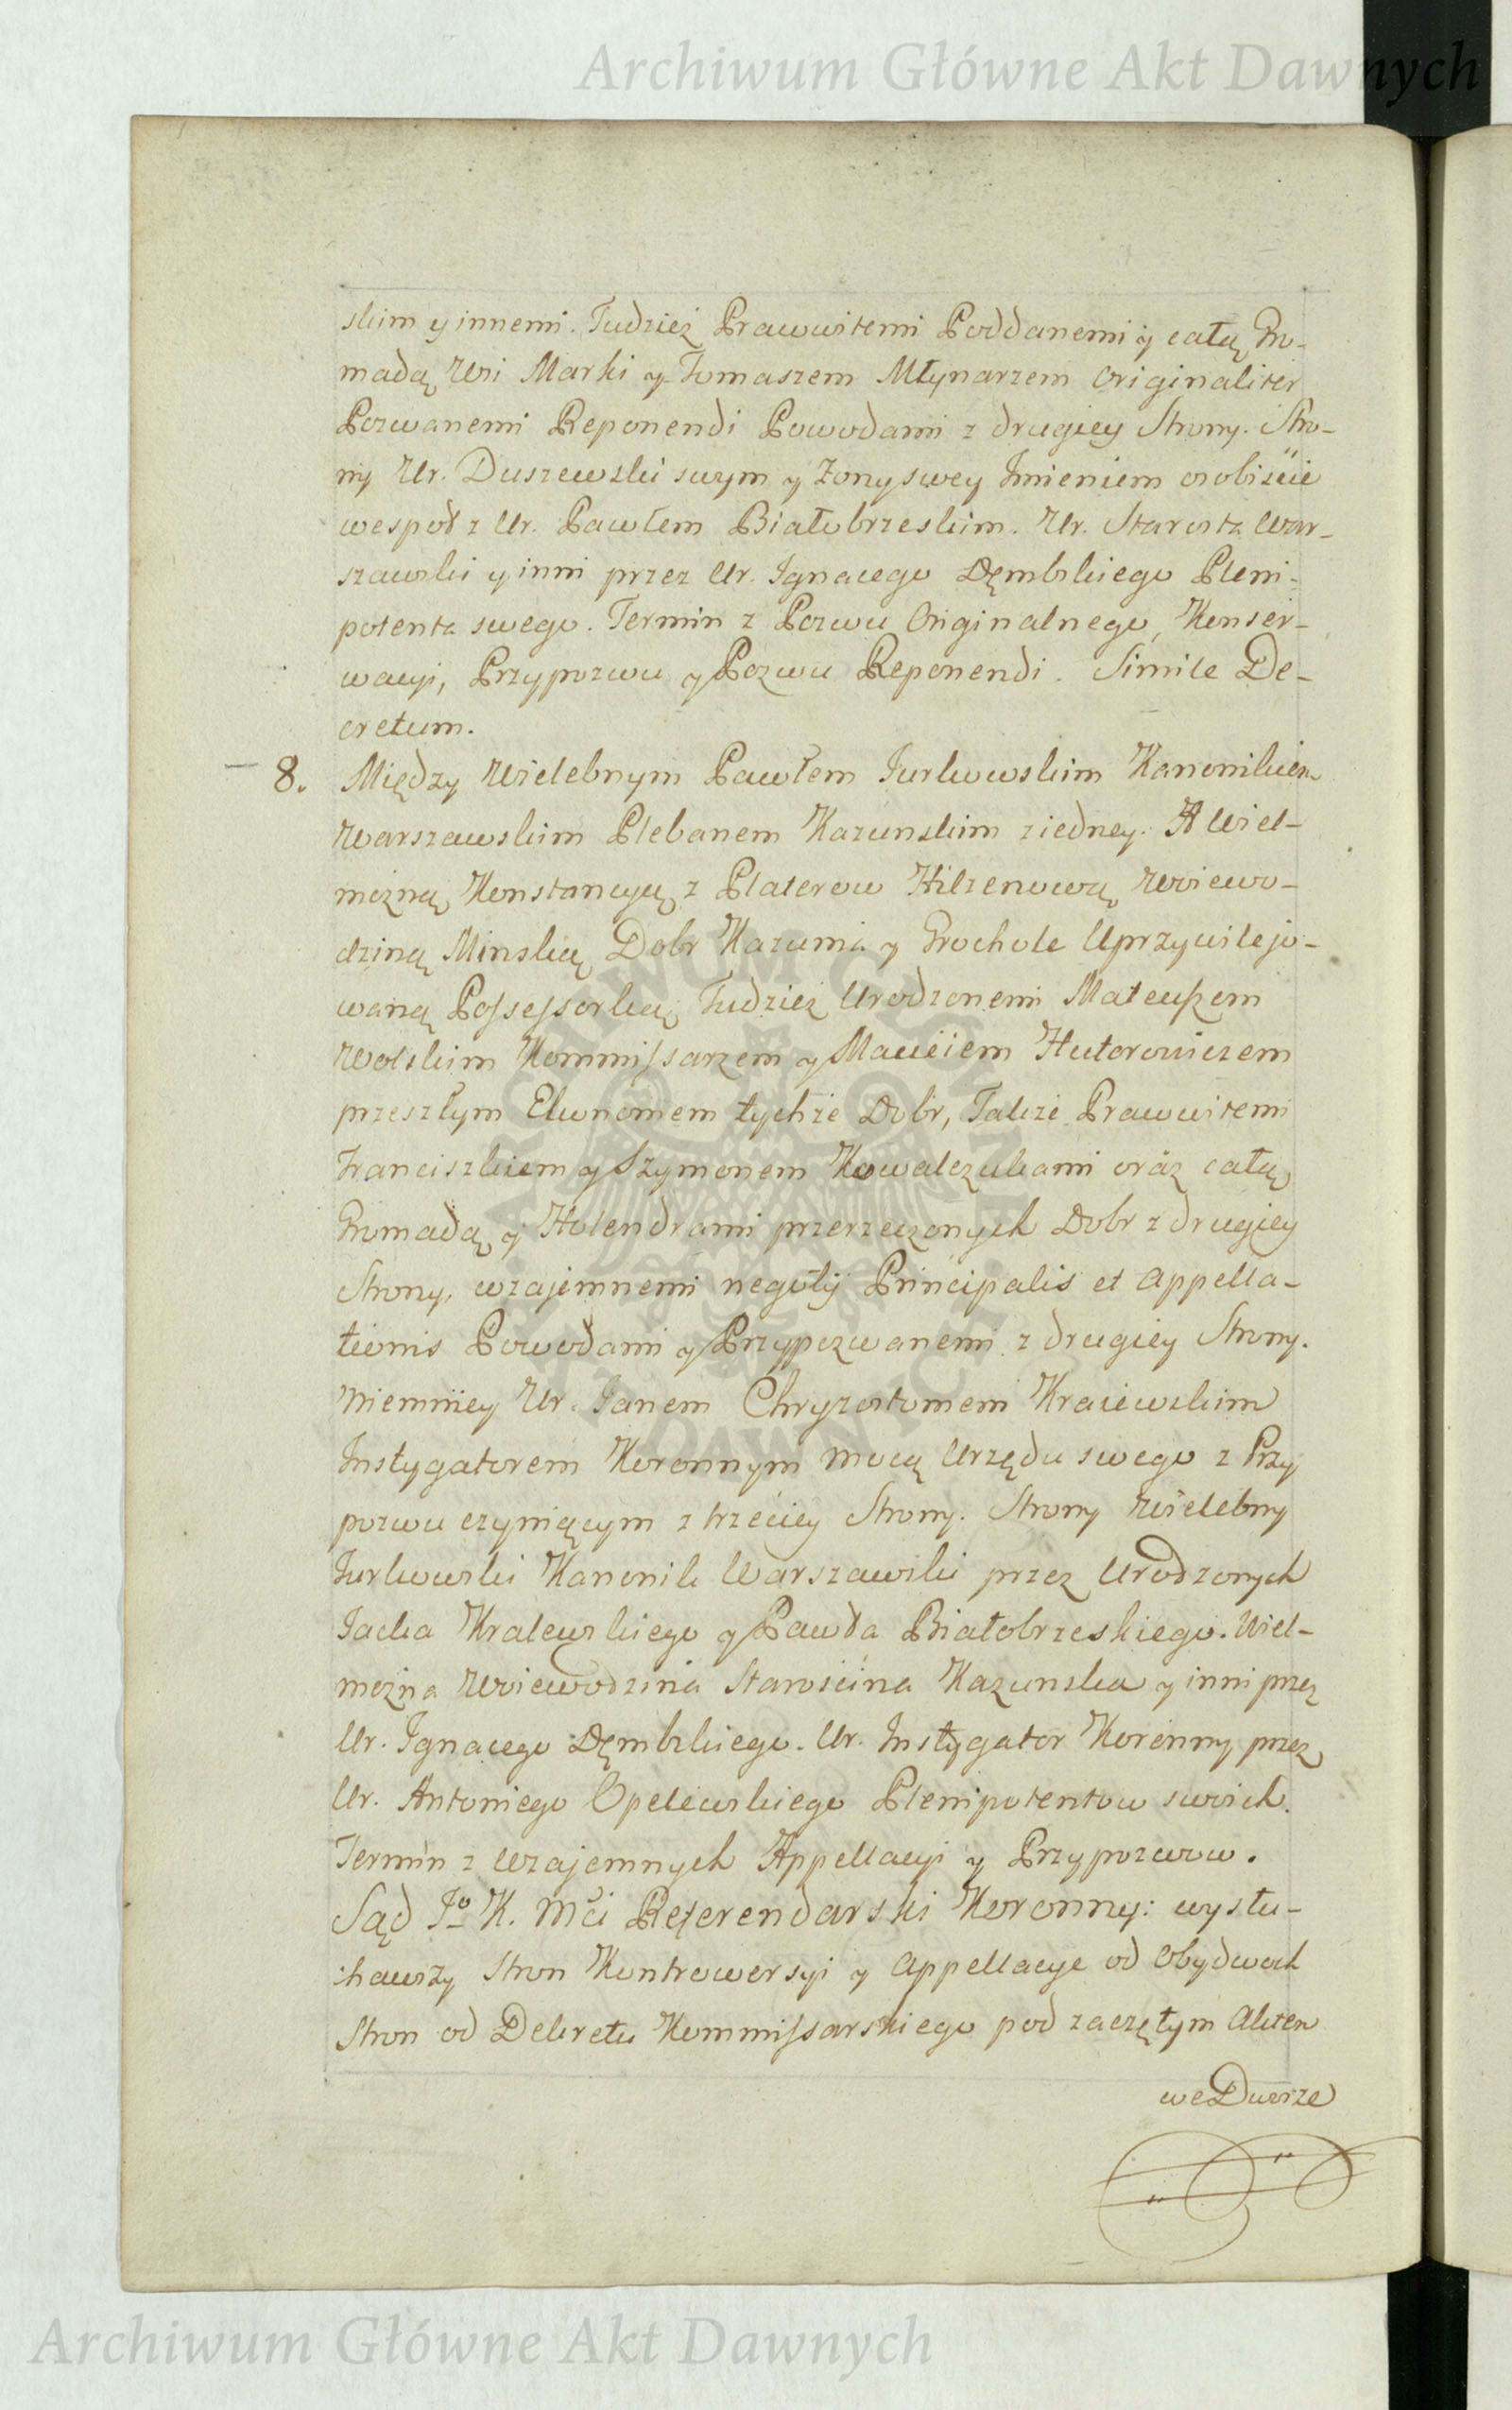 Archiwum Główne Akt Dawnych
skim y innemi. Tudzież Prawwitemi Poddanemi y całą Gro-
madą Wsi Marki y Tomaszem Młynarzem Originaliter
Pozwanemi Reponendi Powodami z drugiey Strony. Stro-
ny Ur. Duszewski swym y Zony swey Imieniem osobiście
wespoł z Ur. Pawłem Białobrzeskim. Ur. Starosta War-
szawski y inni przez Ur. Ignacego Dęmbskiego Pleni-
potenta swego. Termin z Pozwu Originalnego, Konser-
wacyi, Przypozwu y Pozwu Reponendi. Simile De-
cretum.
8. Między Wielebnym Pawłem Jurkowskim Kanonikiem
Warszawskim Plebanem Kazunskim z iedney. A Wiel-
mozną Konstancyą z Platerow Hilzenową Woiewo-
dziną Minską Dobr Kazunia y Grochole Uprzywilejo-
waną Possessorką, Tudzież Urodzonemi Mateuszem
Wolskim Kommissarzem y Macieiem Hutorowiczem
przeszłym Ekonomem tychże Dobr, Także Prawwitemi
Franciszkiem y Szymonem Kowalczukami oraz całą
Gromadą y Holendrami przerzeczonych Dobr z drugiey
Strony, wzajemnemi negotij Principalis et Appella-
tionis Powodami y Przypozwanemi z drugiey Strony.
Niemniey Ur. Janem Chryzostomem Kraiewskim
Instygatorem Koronnym mocą Urzędu swego z Przy
pozwu czyniącym z trzeciey Strony. Strony Wielebny
Jurkowski Kanonik Warszawski przez Urodzonych
Jacka Kralewskiego y Pawła Białobrzeskiego. Wiel-
można Woiewodzina Starościna Kazunska y inni przez
Ur. Ignacego Dęmbskiego. Ur. Instygator Koronny przez
Ur. Antoniego Opelewskiego Plenipotentow swoich.
Termin z Wzajemnych Appellacyi y Przypozwow.
Sąd Jo K. Mci Referendarski Koronny: wysłu-
chawszy Stron Kontrowersyi y Appellacye od Obydwoch
Stron od Dekretu Kommissarskiego pod zaczętym Aktem
we Dworze
Archiwum Główne Akt Dawnych